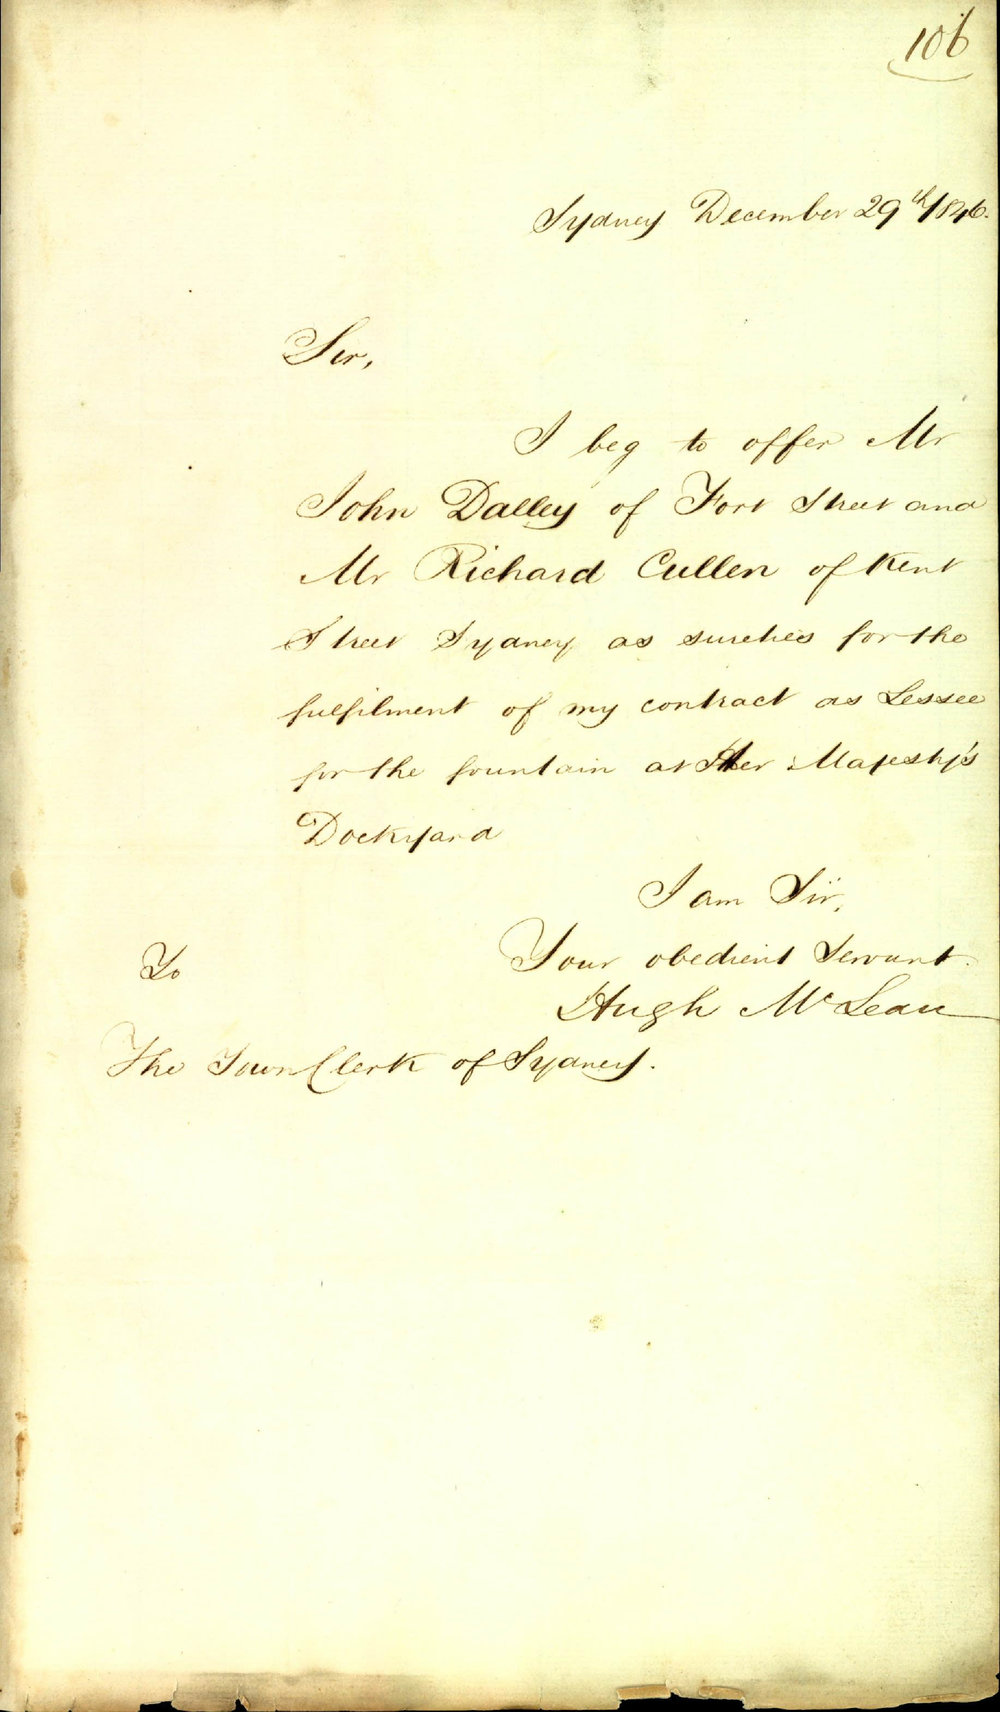 106
Sydney December 29th/1846.
Sir,
I beg to offer Mr
John Dalley of Fort Street and
Mr Richard Cullen of Kent
Street Sydney as sureties for the
fulfilment of my contract as Lessee
for the fountain at Her Majesty's
Dockyard
I am Sir,
Your obedient Servant.
Hugh McLean
To
The Town Clerk of Sydney.